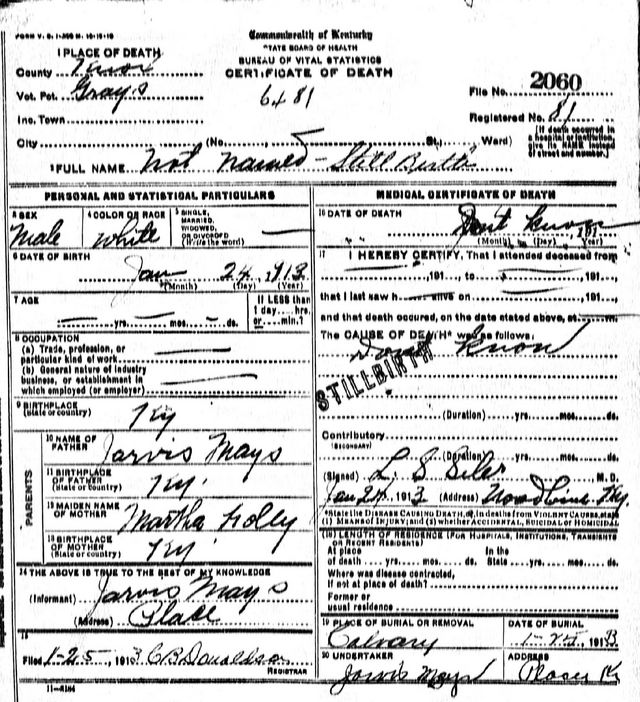 FORM V. S. 1-
Commonwealth of Kentucky
STATE BOARD OF HEALTH
BUREAU OF VITAL STATISTICS
CERTIFICATE OF DEATH
1 PLACE OF DEATH
County Knox
Vot. Pct. Grays
6481
File No. 2060
Registered No. 81
Inc. Town
City (No. St., Ward)
(If death occurred in a hospital or institution, give its NAME instead of street and number.)
2 FULL NAME Not named - Still Birth
PERSONAL AND STATISTICAL PARTICULARS
3 SEX
Male
4 COLOR OR RACE
White
5 SINGLE, MARRIED, WIDOWED OR DIVORCED (Write the word)
6 DATE OF BIRTH
Jan 24, 1913
(Month) (Day) (Year)
7 AGE
yrs. mos. ds.
If LESS than 1 day....hrs. or....min.?
8 OCCUPATION
(a) Trade, profession, or particular kind of work
(b) General nature of industry business, or establishment in which employed (or employer)
9 BIRTHPLACE
(State or country) Ky
PARENTS
10 NAME OF FATHER Jarvis Mays
11 BIRTHPLACE OF FATHER (State or country) Ky.
12 MAIDEN NAME OF MOTHER Martha
13 BIRTHPLACE OF MOTHER (State or country) Ky
14 THE ABOVE IS TRUE TO THE BEST OF MY KNOWLEDGE
(Informant) Jarvis Mays
(Address) Place
15
Filed 1-25, 1913 C B Donaldson
REGISTRAR
MEDICAL CERTIFICATE OF DEATH
16 DATE OF DEATH
Dont Know
191
(Month) (Day) (Year)
17 I HEREBY CERTIFY, That I attended deceased from
191 , to 191 ,
that I last saw h alive on 191 ,
and that death occured, on the date stated above, at m.
The CAUSE OF DEATH* was as follows:
Dont Know
STILLBIRTH
(Duration) yrs. mos. ds.
Contributory
(SECONDARY)
(Duration) yrs. mos. ds.
(Signed) L. S. Siler M. D.
Jan 24, 1913 (Address) Woodbine Ky.
*State the DISEASE CAUSING DEATH, or, in deaths from VIOLENT CAUSES, state (1) MEANS OF INJURY; and (2) whether ACCIDENTAL, SUICIDAL or HOMICIDAL
18 LENGTH OF RESIDENCE (FOR HOSPITALS, INSTITUTIONS, TRANSIENTS OR RECENT RESIDENTS)
At place of death yrs. mos. ds. In the State yrs. mos. ds.
Where was disease contracted, If not at place of death?
Former or usual residence
19 PLACE OF BURIAL OR REMOVAL
Calvary
DATE OF BURIAL
1-25, 1913
20 UNDERTAKER
Jarvis Mays
ADDRESS
Place
11-